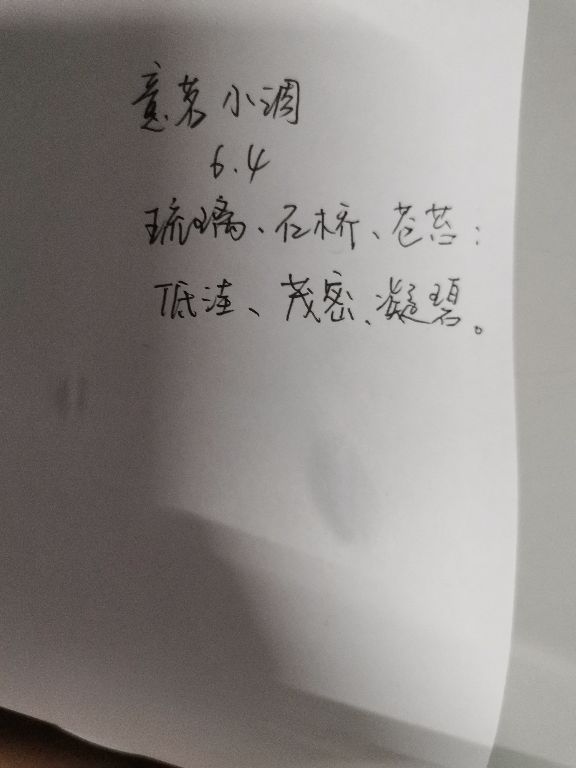 意茗小调
6.4
琉璃、石桥、苍苔：
低洼、茂密、凝碧。